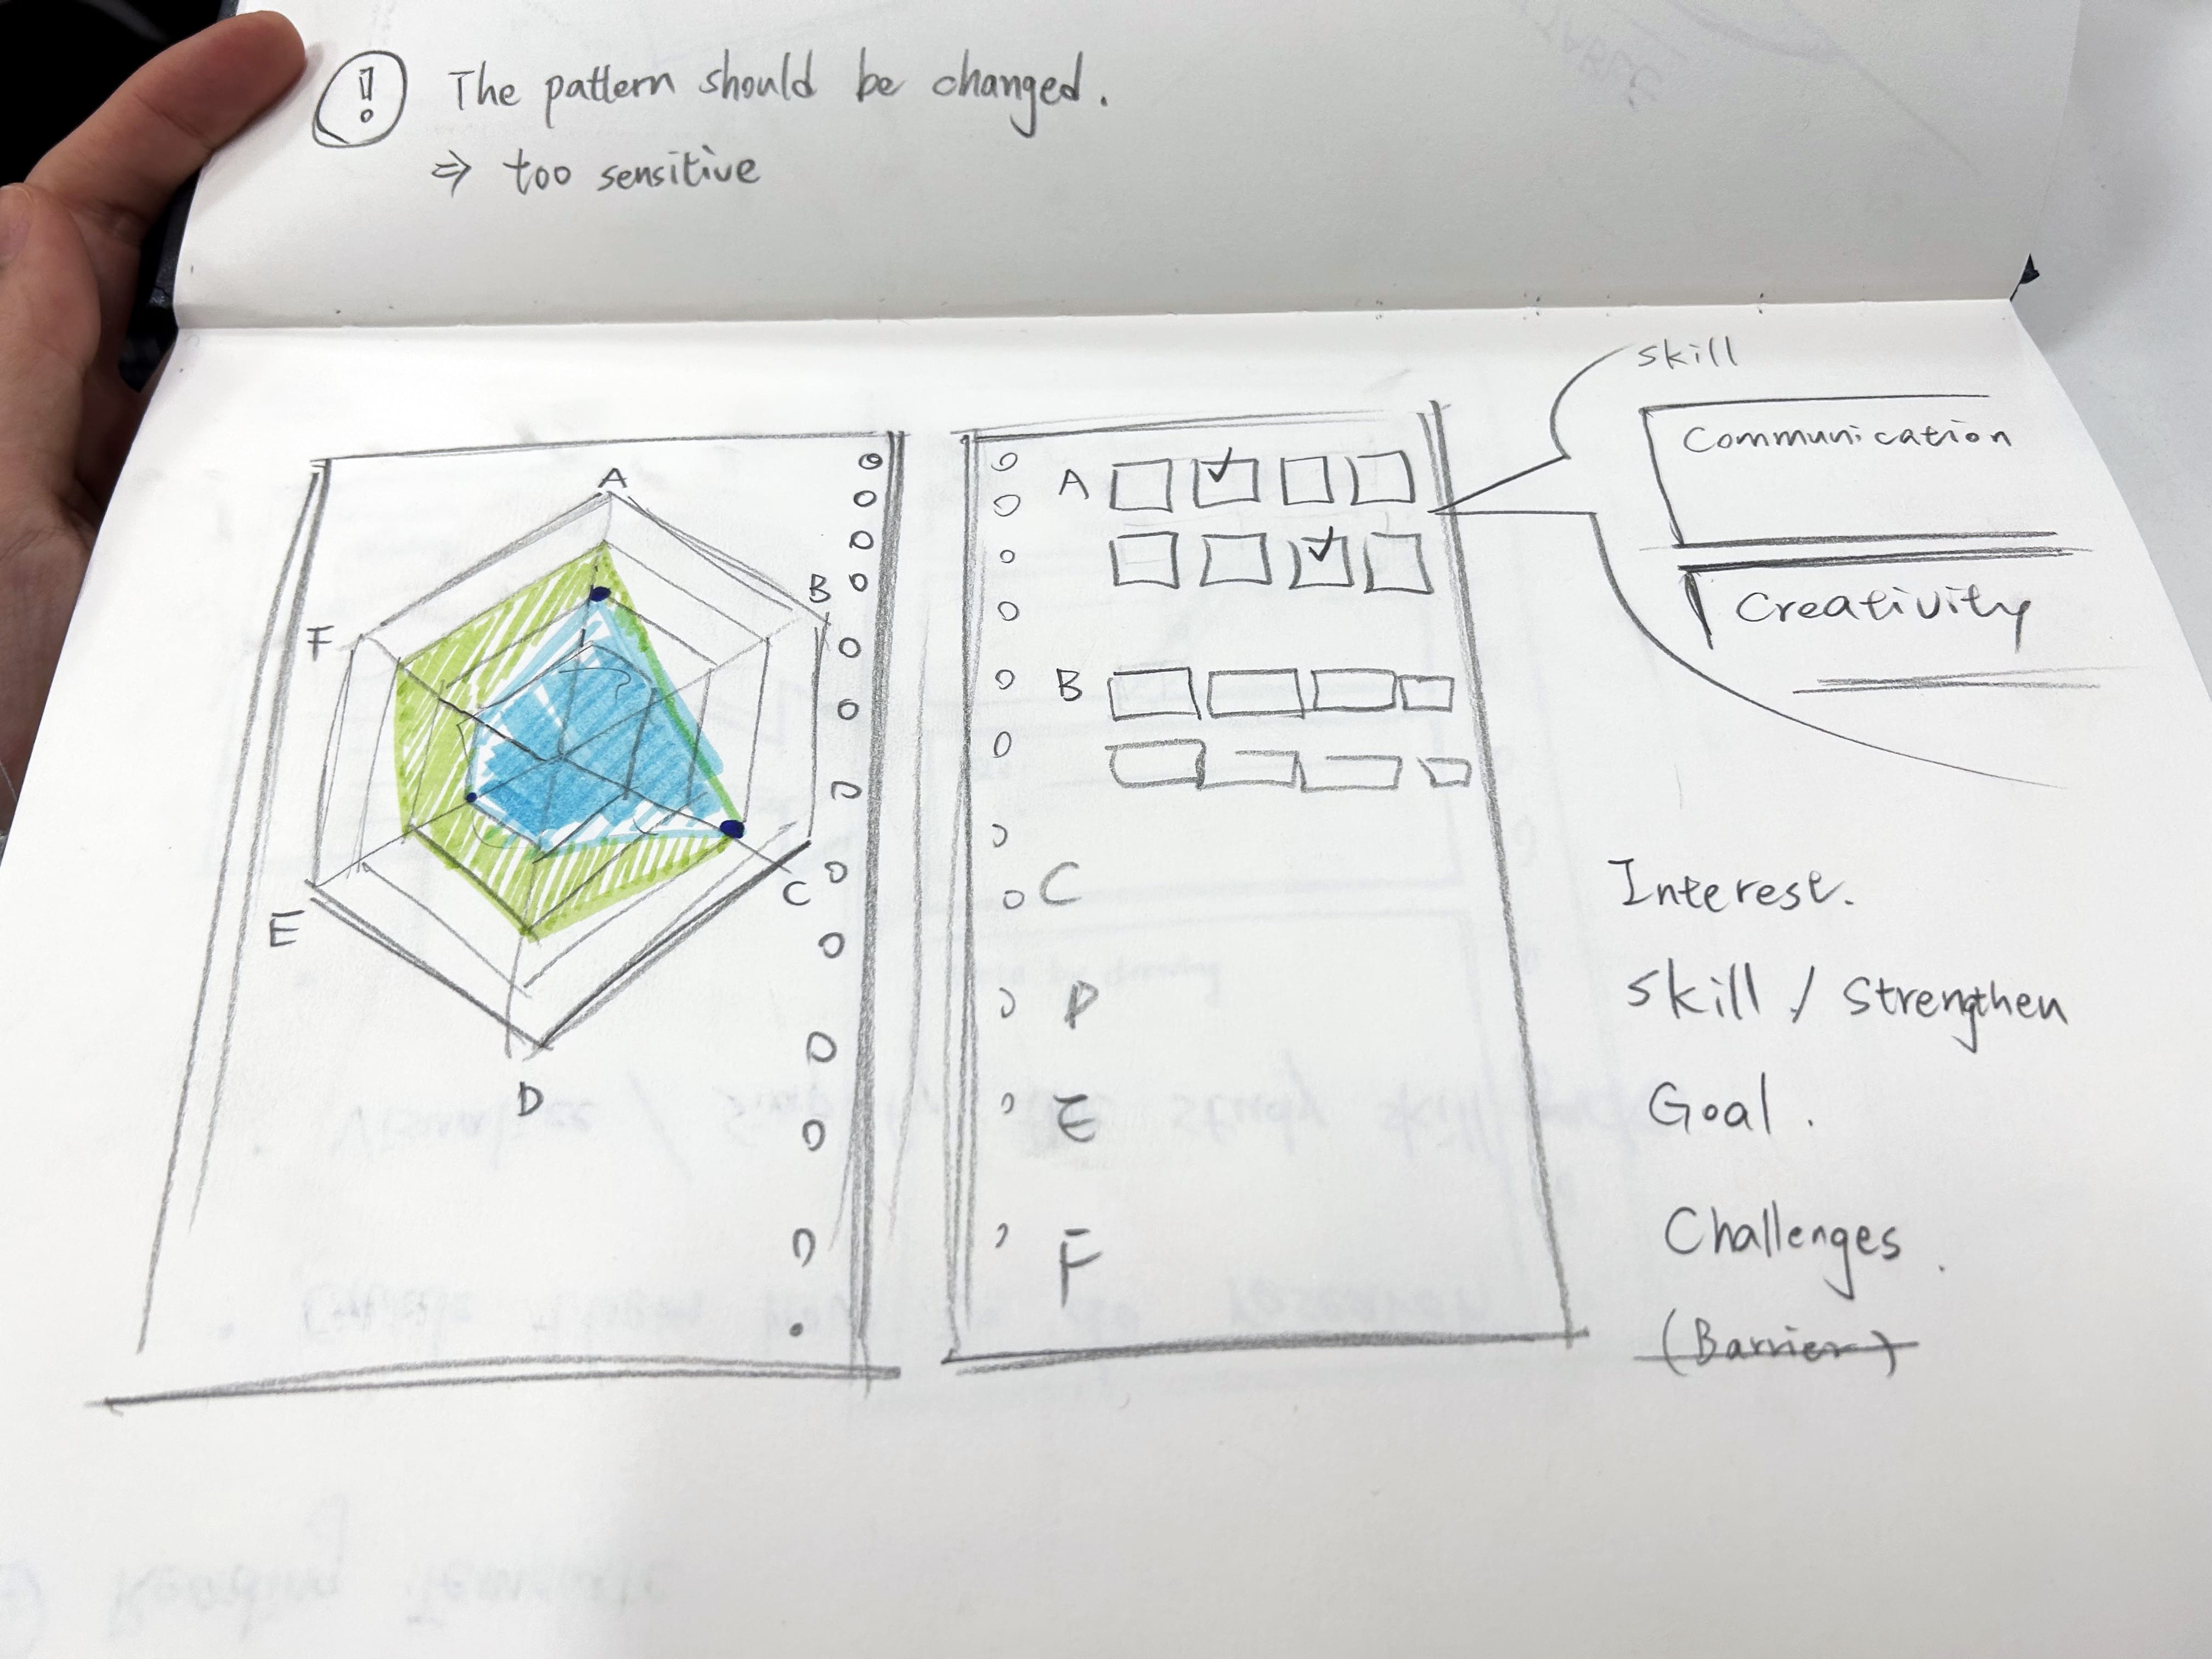 ! The pattern should be changed.
⇒ too sensitive
skill
Communication
Creativity
A
B
C
D
E
F
A
B
C
D
E
F
Interest.
Skill / Strengthen
Goal.
Challenges.
(Barrier)